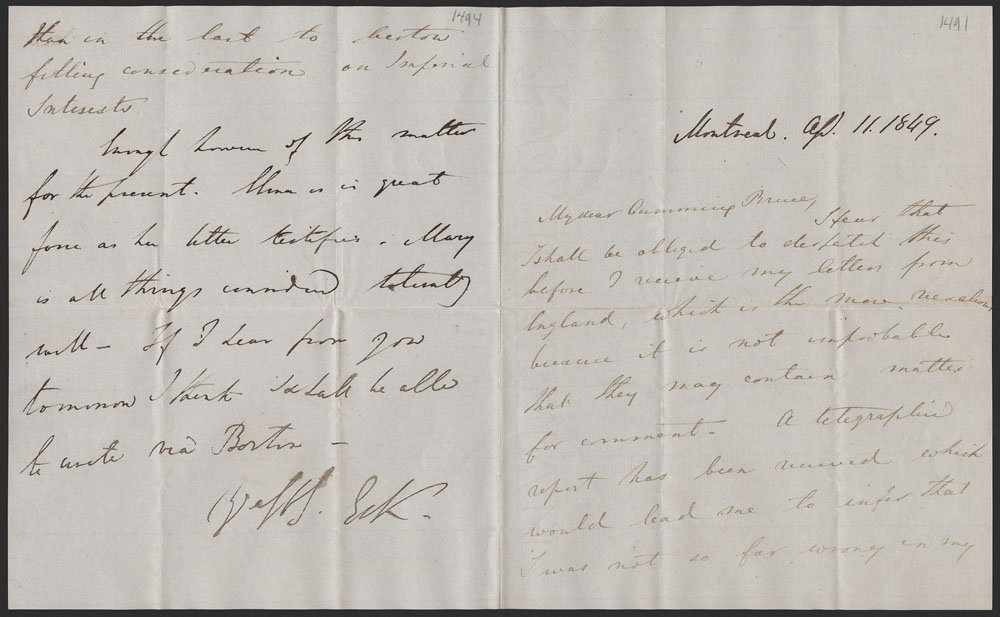 1491
Montreal. Ap. 11. 1849.
My dear Cumming Bruce,
I fear that
I shall be obliged to despatch this
before I receive my letters from
England, which is the more vexatious
because it is not improbable
that they may contain matter
for comment - A telegraphic
report has been received which
would lead me to infer that
I was not so far wrong in my
1494
than in the last to bestow
filling consideration on Imperial
Interests
Enough however of this matter
for the present. Elma is in great
force as her letter testifies. Mary
is all things considered tolerably
well - If I hear from you
tomorrow I think I shall be able
to write via Boston -
E & K.